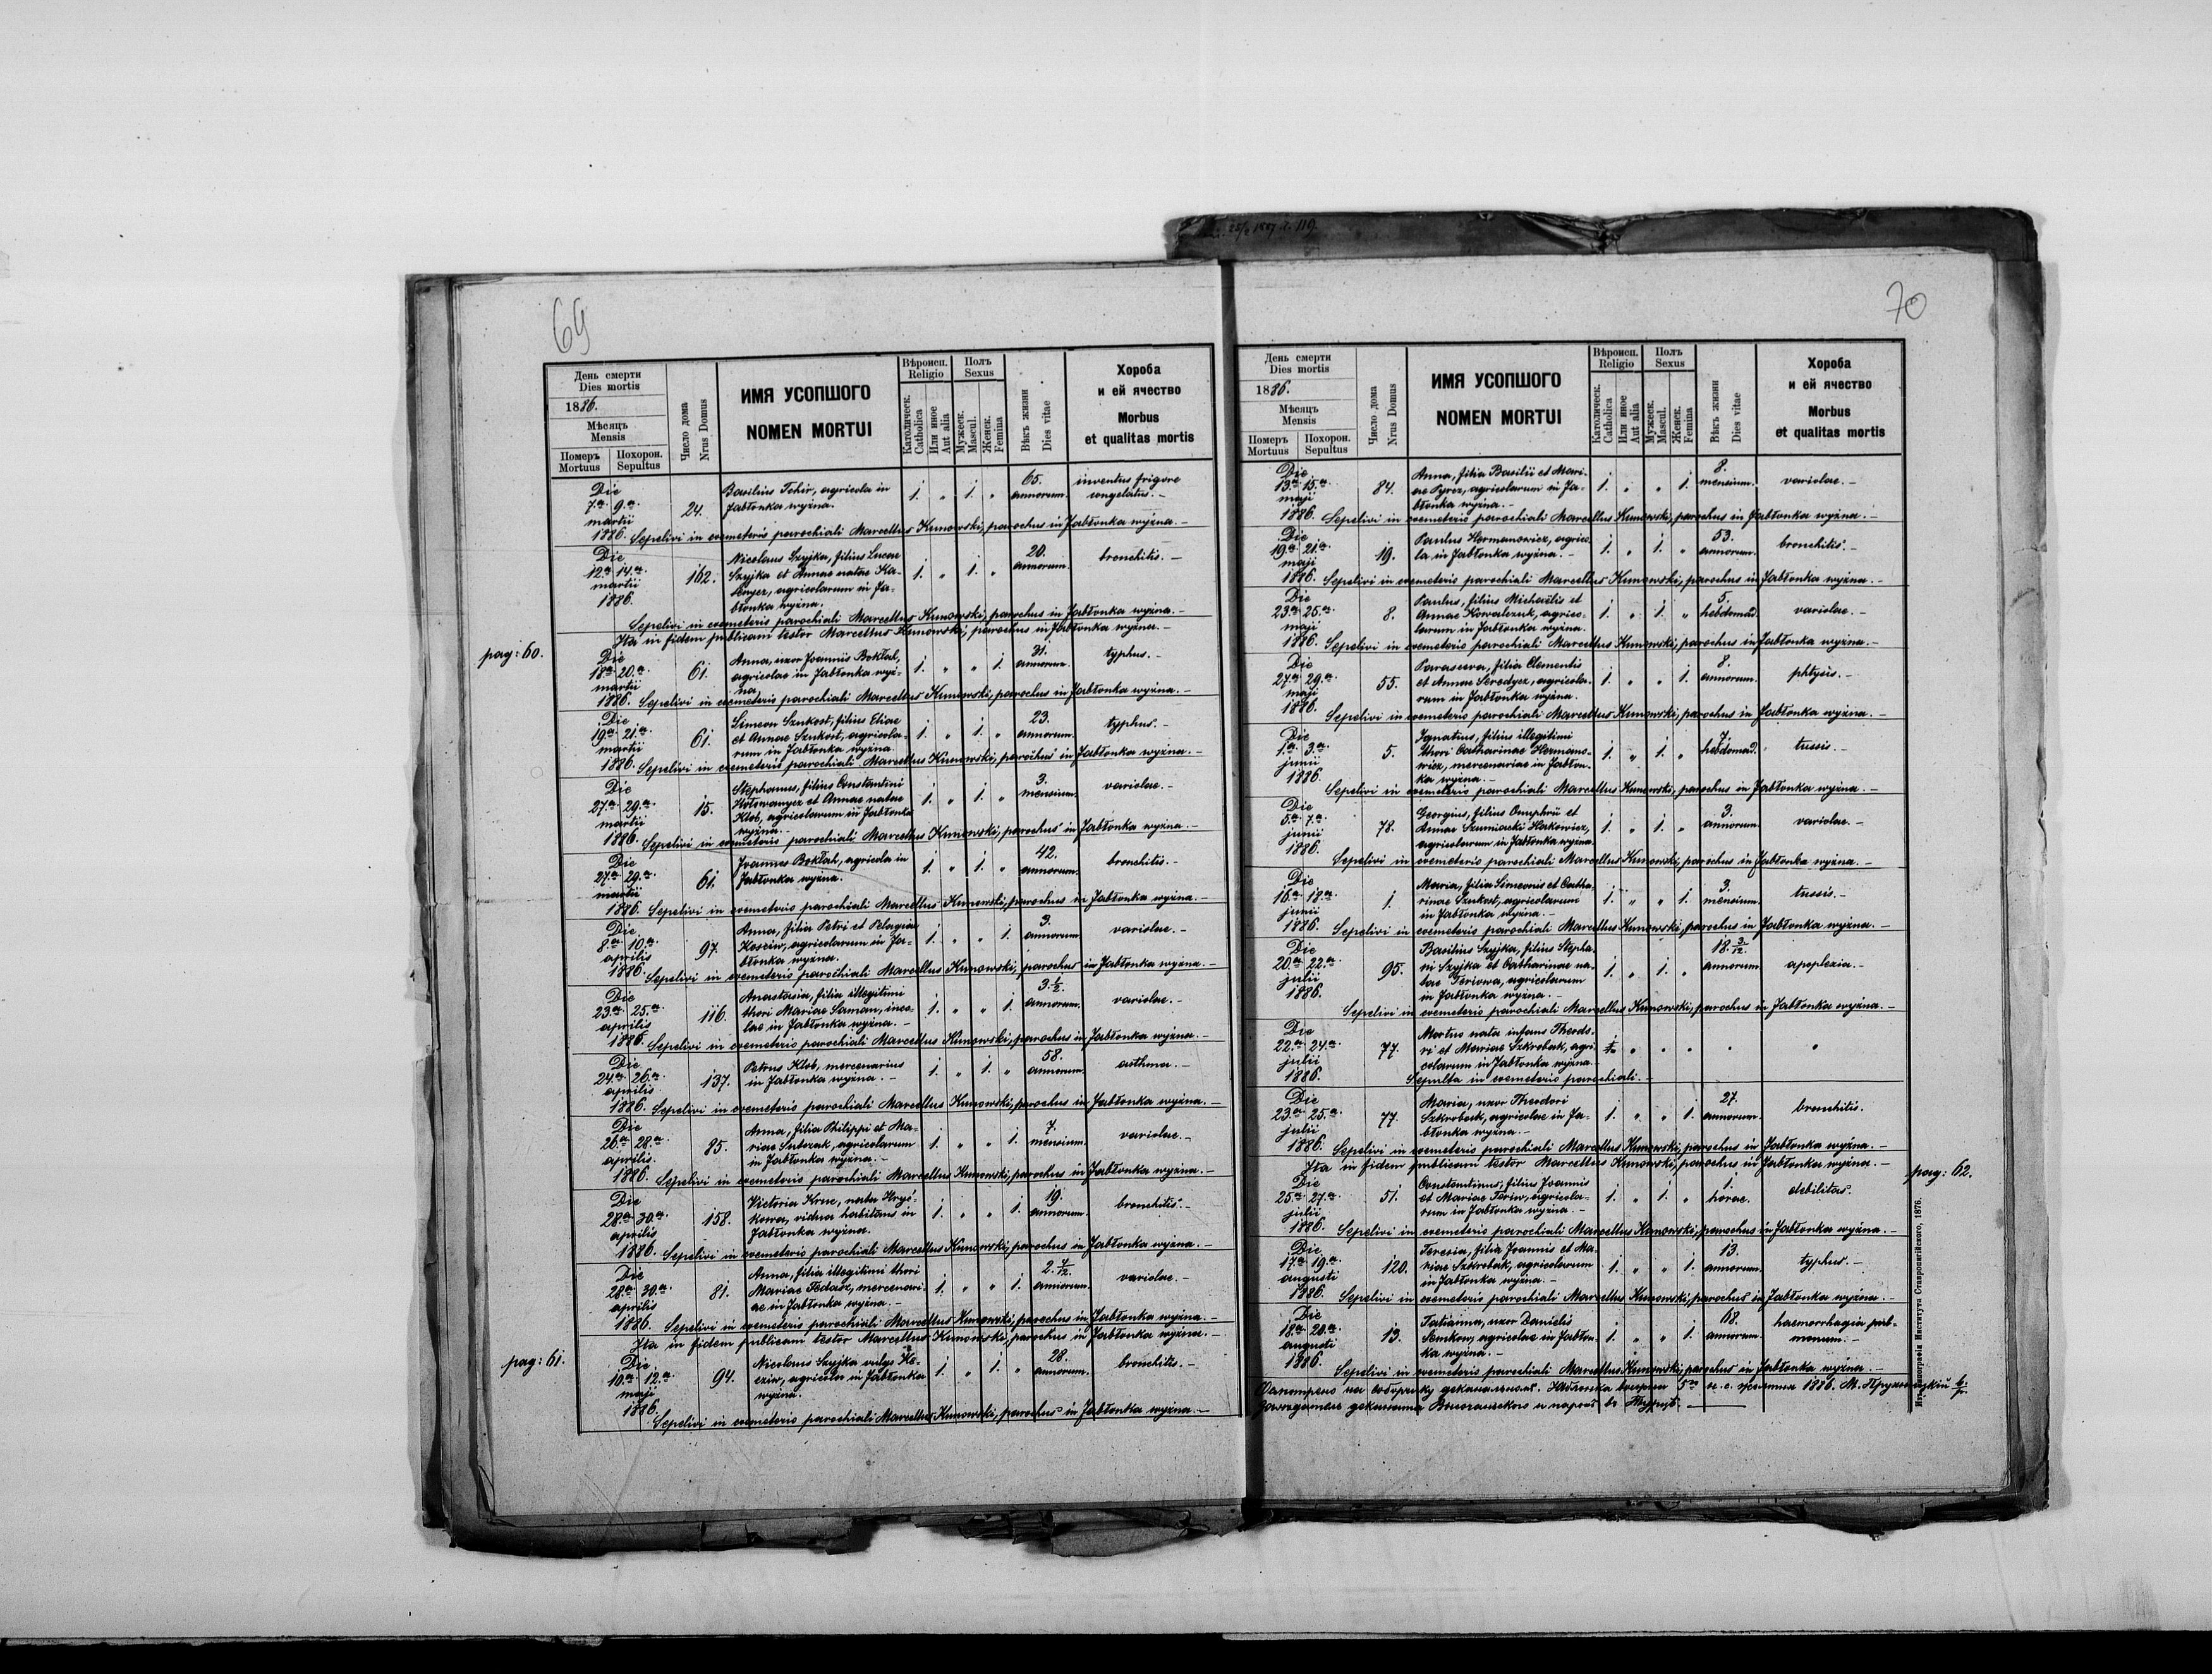 69
День смерти
Dies mortis
1886.
Мѣсяцъ
Mensis
Померъ
Mortuus
Похорон.
Sepultus
Число дома
Nrus Domus
ИМЯ УСОПШОГО
NOMEN MORTUI
Вѣроисп.
Religio
Католическ.
Catholica
Или иное
Aut alia
Полъ
Sexus
Мужеск.
Mascul.
Женск.
Femina
Вѣкъ жизни
Dies vitae
Хороба
и ей ячество
Morbus
et qualitas mortis
Die 65. inventus frigore
7ª 9.ª 24. Basilius Tchir, agricola in 1. " 1. " annorum. congelatus. -
martii Jabłonka wyżna.
1886. Sepelivi in coemeterio parochiali Marcellus Kunowski, parochus in Jabłonka wyżna. -
Die Nicolaus Szyjka, filius Lucae 20.
12ª 14.ª 162. Szyjka et Annae natae Ka- 1. " 1. " annorum. bronchitis. -
martii agricolarum in Ja-
1886. błonka wyżna.
Sepelivi in coemeterio parochiali Marcellus Kunowski, parochus in Jabłonka wyżna. -
Ita in fidem publicam testor Marcellus Kunowski, parochus in Jabłonka wyżna. -
pag: 60.
Die Anna, uxor Joannis Boktah, 31.
18ª 20.ª 61. agricolae in Jabłonka wyż- 1. " " 1. annorum. typhus. -
martii na
1886. Sepelivi in coemeterio parochiali Marcellus Kunowski, parochus in Jabłonka wyżna. -
Die Simeon Sznkost, filius Eliae 23.
19ª 21.ª 61. et Annae Sznkost, agricola- 1. " 1. " annorum. typhus. -
martii rum in Jabłonka wyżna
1886. Sepelivi in coemeterio parochiali Marcellus Kunowski, parochus in Jabłonka wyżna. -
Die Stephanus, filius Constantini 3.
27ª 29.ª 15. et Annae natae 1. " 1. " mensium. variolae. -
martii Klob, agricolarum in Jabłonka
wyżna. -
1886. Sepelivi in coemeterio parochiali Marcellus Kunowski, parochus in Jabłonka wyżna. -
Die Joannes Boktah, agricola in 42.
27ª 29.ª 61. Jabłonka wyżna. 1. " 1. " annorum. bronchitis. -
martii
1886. Sepelivi in coemeterio parochiali Marcellus Kunowski, parochus in Jabłonka wyżna. -
Die Anna, filia Petri et Pelagiae 3.
8ª 10.ª 97. Kosciw, agricolarum in Ja- 1. " " 1. annorum. variolae. -
aprilis błonka wyżna.
1886. Sepelivi in coemeterio parochiali Marcellus Kunowski, parochus in Jabłonka wyżna. -
Die Anastasia, filia illegitimi 3 ½.
23ª 25.ª 116. thori Mariae Saman, inco- 1. " " 1. annorum. variolae. -
aprilis lae in Jabłonka wyżna. -
1886. Sepelivi in coemeterio parochiali Marcellus Kunowski, parochus in Jabłonka wyżna. -
Die Petrus Klob, mercenarius 58.
24ª 26.ª 137. in Jabłonka wyżna. - 1. " 1. " annorum. asthma. -
aprilis
1886. Sepelivi in coemeterio parochiali Marcellus Kunowski, parochus in Jabłonka wyżna. -
Die Anna, filia Philippi et Ma- 7.
26ª 28.ª 85. riae agricolarum 1. " " 1. mensium. variolae. -
aprilis. in Jabłonka wyżna. -
1886. Sepelivi in coemeterio parochiali Marcellus Kunowski, parochus in Jabłonka wyżna. -
Die Victoria nata Hryć- 19.
28ª 30.ª 158. kowa, vidua habitans in 1. " " 1. annorum. bronchitis. -
aprilis Jabłonka wyżna.
1886. Sepelivi in coemeterio parochiali Marcellus Kunowski, parochus in Jabłonka wyżna. -
Die Anna, filia illegitimi thori
28ª 30.ª 81. Mariae Fedasz, mercenari- 1. " " 1. annorum. variolae. -
aprilis ae in Jabłonka wyżna. -
1886. Sepelivi in coemeterio parochiali Marcellus Kunowski, parochus in Jabłonka wyżna. -
Ita in fidem publicam testor Marcellus Kunowski, parochus in Jabłonka wyżna. -
pag: 61.
Die Nicolaus Szyjka vulgo 28.
10ª 12.ª 94. agricola in Jabłonka 1. " 1. " annorum. bronchitis. -
maji wyżna.
1886.
Sepelivi in coemeterio parochiali Marcellus Kunowski, parochus in Jabłonka wyżna. -
70
День смерти
Dies mortis
1886.
Мѣсяцъ
Mensis
Померъ
Mortuus
Похорон.
Sepultus
Число дома
Nrus Domus
ИМЯ УСОПШОГО
NOMEN MORTUI
Вѣроисп.
Religio
Католическ.
Catholica
Или иное
Aut alia
Полъ
Sexus
Мужеск.
Mascul.
Женск.
Femina
Вѣкъ жизни
Dies vitae
Хороба
и ей ячество
Morbus
et qualitas mortis
Die Anna, filia Basilii et Mari- 8.
13ª 15.ª 84. ae Pyrez, agricolarum in Ja- 1. " " 1. mensium. variolae. -
maji błonka wyżna. -
1886. Sepelivi in coemeterio parochiali Marcellus Kunowski, parochus in Jabłonka wyżna. -
Die Paulus Hermanowicz, agrico- 53.
19ª 21.ª 19. la in Jabłonka wyżna. - 1. " 1. " annorum. bronchitis. -
maji
1886. Sepelivi in coemeterio parochiali Marcellus Kunowski, parochus in Jabłonka wyżna. -
Die Paulus, filius Michaëlis et 5.
23ª 25.ª 8. Annae Kowalczuk, agrico- 1. " 1. " hebdomad. variolae. -
maji larum in Jabłonka wyżna.
1886. Sepelivi in coemeterio parochiali Marcellus Kunowski, parochus in Jabłonka wyżna. -
Die Parasceva, filia Clementis 8.
27ª 29.ª 55. et Annae Seredycz, agricola- 1. " " 1. annorum. phtysis. -
maji rum in Jabłonka wyżna.
1886. Sepelivi in coemeterio parochiali Marcellus Kunowski, parochus in Jabłonka wyżna. -
Die Ignatius, filius illegitimi 7.
1ª 3.ª 5. thori Catharinae Hermano- 1. " 1. " hebdomad. tussis. -
junii wicz, mercenariae in Jabłon-
1886. ka wyżna. -
Sepelivi in coemeterio parochiali Marcellus Kunowski, parochus in Jabłonka wyżna. -
Die Georgius, filius Onuphrii et 3.
5ª 7.ª 78. Annae Szumiacki Hakowicz, 1. " 1. " annorum. variolae. -
junii agricolarum in Jabłonka wyżna.
1886.
Sepelivi in coemeterio parochiali Marcellus Kunowski, parochus in Jabłonka wyżna. -
Die Maria, filia Simeonis et Catha- 3.
16ª 18.ª 1. rinae Sznkost, agricolarum 1. " " 1. mensium. tussis. -
junii in Jabłonka wyżna. -
1886. Sepelivi in coemeterio parochiali Marcellus Kunowski, parochus in Jabłonka wyżna. -
Die Basilius Szyjka, filius Stepha- 18. 3/12.
20ª 22.ª 95. ni Szyjka et Catharinae na- 1. " 1. " annorum. apoplexia. -
julii tae Feriowa, agricolarum
1886. in Jabłonka wyżna. -
Sepelivi in coemeterio parochiali Marcellus Kunowski, parochus in Jabłonka wyżna. -
Die Mortuo nata infans Theodo-
22ª 24.ª 77. ri et Mariae Szkrobak, agri- " " "
julii colarum in Jabłonka wyżna.
1886. Sepulta in coemeterio parochiali. -
Die Maria, uxor Theodori 27.
23ª 25.ª 77. Szkrobak, agricolae in Ja- 1. " " 1. annorum. bronchitis.
julii błonka wyżna. -
1886. Sepelivi in coemeterio parochiali Marcellus Kunowski, parochus in Jabłonka wyżna. -
Ita in fidem publicam testor Marcellus Kunowski, parochus in Jabłonka wyżna. -
pag: 62.
Die Constantinus, filius Joannis 1.
25ª 27.ª 51. et Mariae Feriw, agricola- 1. " 1. " horae. debilitas. -
julii rum in Jabłonka wyżna. -
1886. Sepelivi in coemeterio parochiali Marcellus Kunowski, parochus in Jabłonka wyżna. -
Die Teresia, filia Joannis et Ma- 13.
17ª 19.ª 120. riae Szkrobak, agricolarum 1. " " 1. annorum. typhus. -
augusti in Jabłonka wyżna. -
1886. Sepelivi in coemeterio parochiali Marcellus Kunowski, parochus in Jabłonka wyżna. -
Die Tatianna, uxor Danielis 68. haemorrhagia pul-
18ª 20.ª 13. Semkow, agricolae in Jabłon- 1. " " 1. annorum. monum. -
augusti ka wyżna. -
1886.
Sepelivi in coemeterio parochiali Marcellus Kunowski, parochus in Jabłonka wyżna. -
1886. М.
деканата
Института Ставропигійского, 1876.